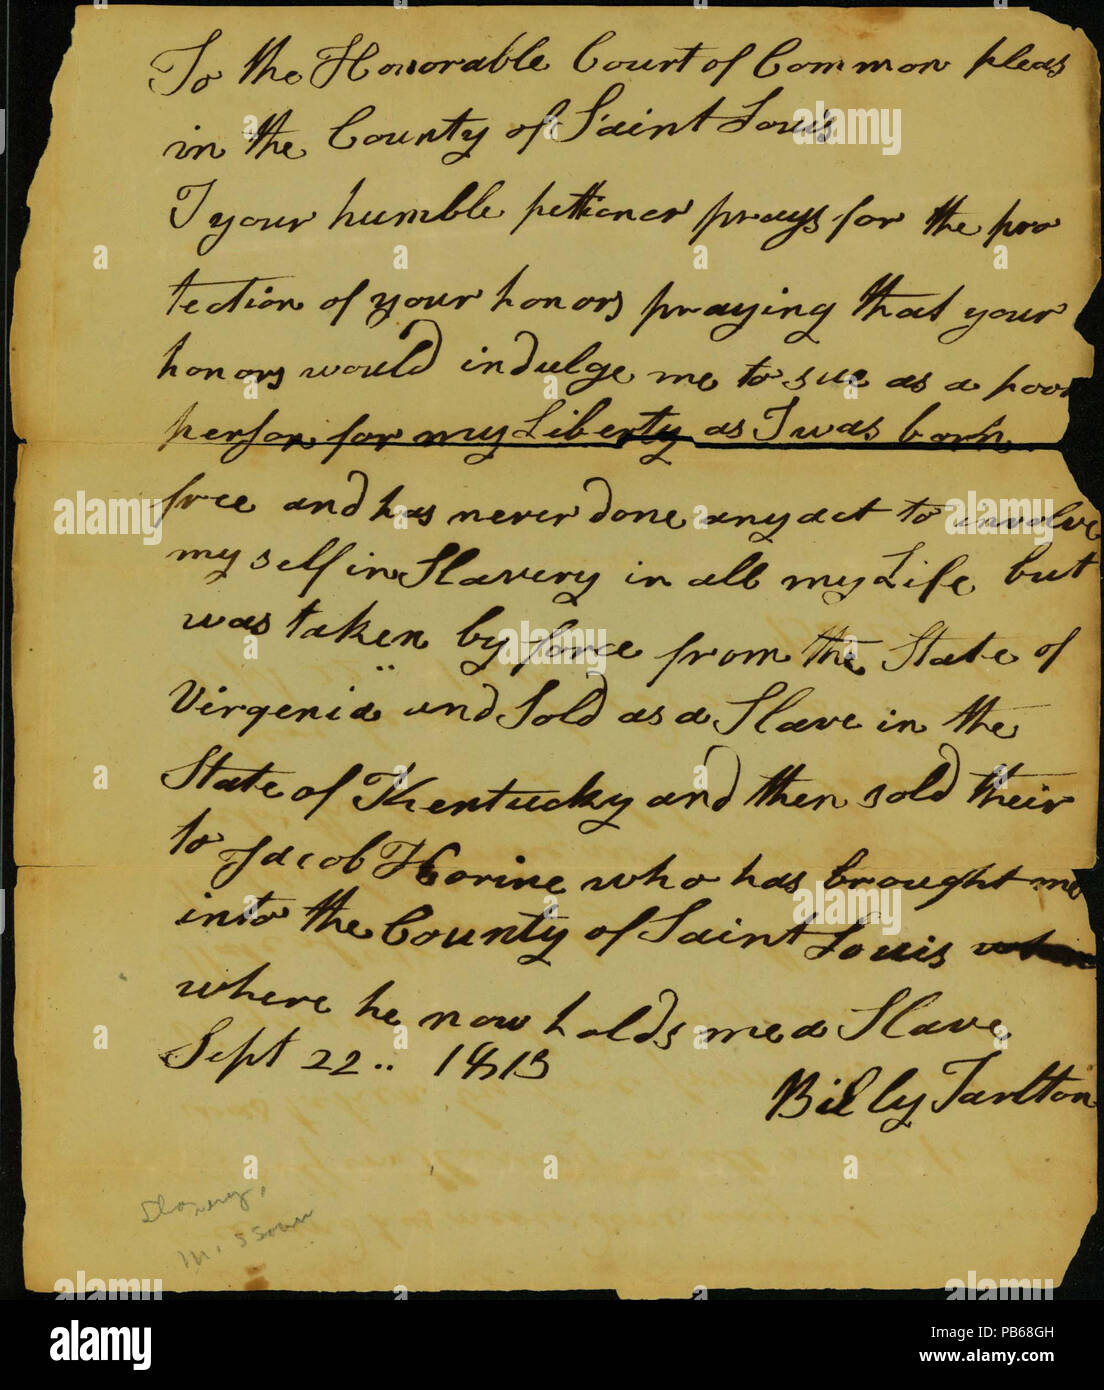 To the Honorable Court of Common pleas
in the County of Saint Louis
I your humble petioner prays for the pro
tection of your honors praying that your
honors would indulge me to sue as a poor
person for my Liberty as I was born
free and has never done any act to involve
my self in Slavery in all my Life but
was taken by force from the State of
Virgenia and Sold as a Slave in the
State of Kentucky and then sold their
to Jacob Horine who has brought me
into the County of Saint Louis
where he now holds me a Slave
Sept 22.. 1813
Billy Tarlton
Slavery,
Missouri
alamy stock photo
alamy
a
alamy
Image ID: PB68GH
www.alamy.com